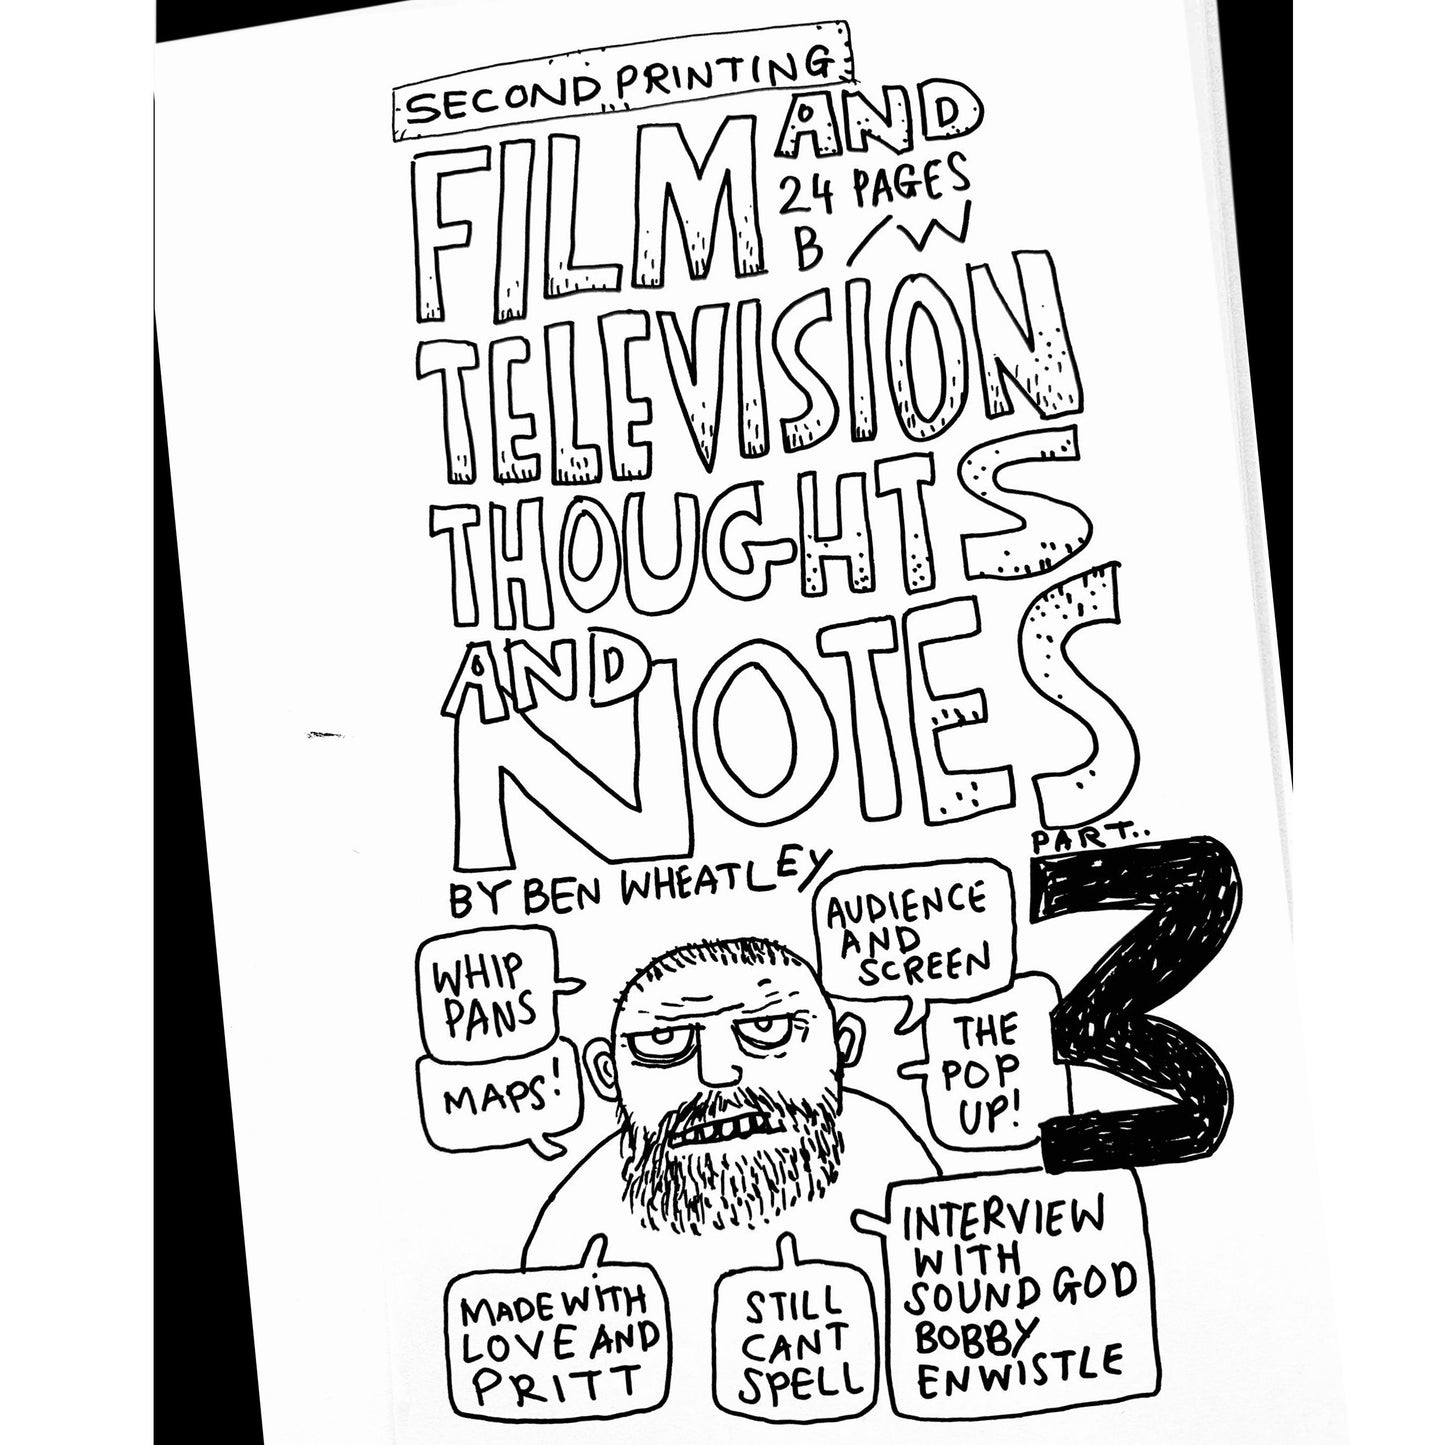 SECOND PRINTING
FILM AND
24 PAGES
B/W
TELEVISION
THOUGHTS
AND
NOTES
PART..
3
BY BEN WHEATLEY
WHIP
PANS
MAPS!
AUDIENCE
AND
SCREEN
THE
POP
UP!
MADE WITH
LOVE AND
PRITT
STILL
CANT
SPELL
INTERVIEW
WITH
SOUND GOD
BOBBY
ENWISTLE